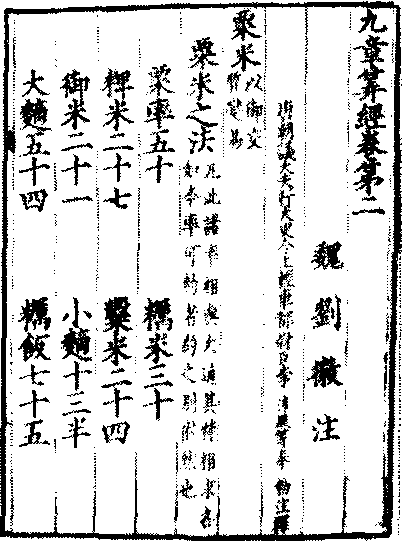 九章筭經卷第二
魏劉徽注
唐朝議大夫行太史令上輕車都尉臣李淳風等奉勅注釋
粟米以御交質變易
粟米之法凡此諸率相與大通其特相求各如本率可約者約之別術然也
粟率五十　糲米三十
粺米二十七　糳米二十四
御米二十一　小麵十三半
大麵五十四　糲飯七十五